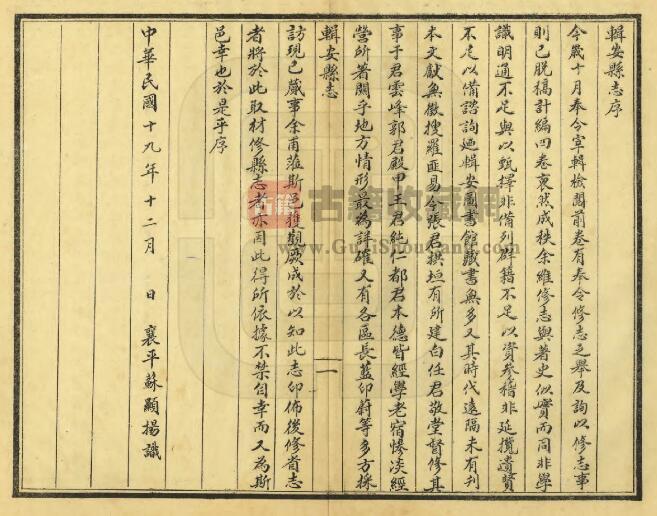 輯安縣志序
今歲十月奉令宰輯檢閱前卷有奉令修志之舉及詢以修志事
則已脫稿計編四卷裒然成秩余維修志與著史似實而同非學
識明通不足與以甄擇非備列群籍不足以資參稽非延攬遺賢
不足以備諮詢廼輯安圖書館藏書無多又其時代遠隔未有刊
本文獻無徵搜羅匪易令張君拱垣有所建白任君敬堂督修其
事于君雲峰郭君殿甲王君純仁都君本德皆經學老宿慘淡經
營所著關乎地方情形最為詳確又有各區長藍印蔚等多方採
輯安縣志
一
訪現已蕆事余甫蒞斯邑獲觀厥成於以知此志印佈後修省志
者將於此取材修縣志者亦因此得所依據不禁自幸而又為斯
邑幸也於是乎序
中華民國十九年十二月 日 襄平蘇顯揚識
古籍 古籍收藏網
www.GuJiShouCang.com